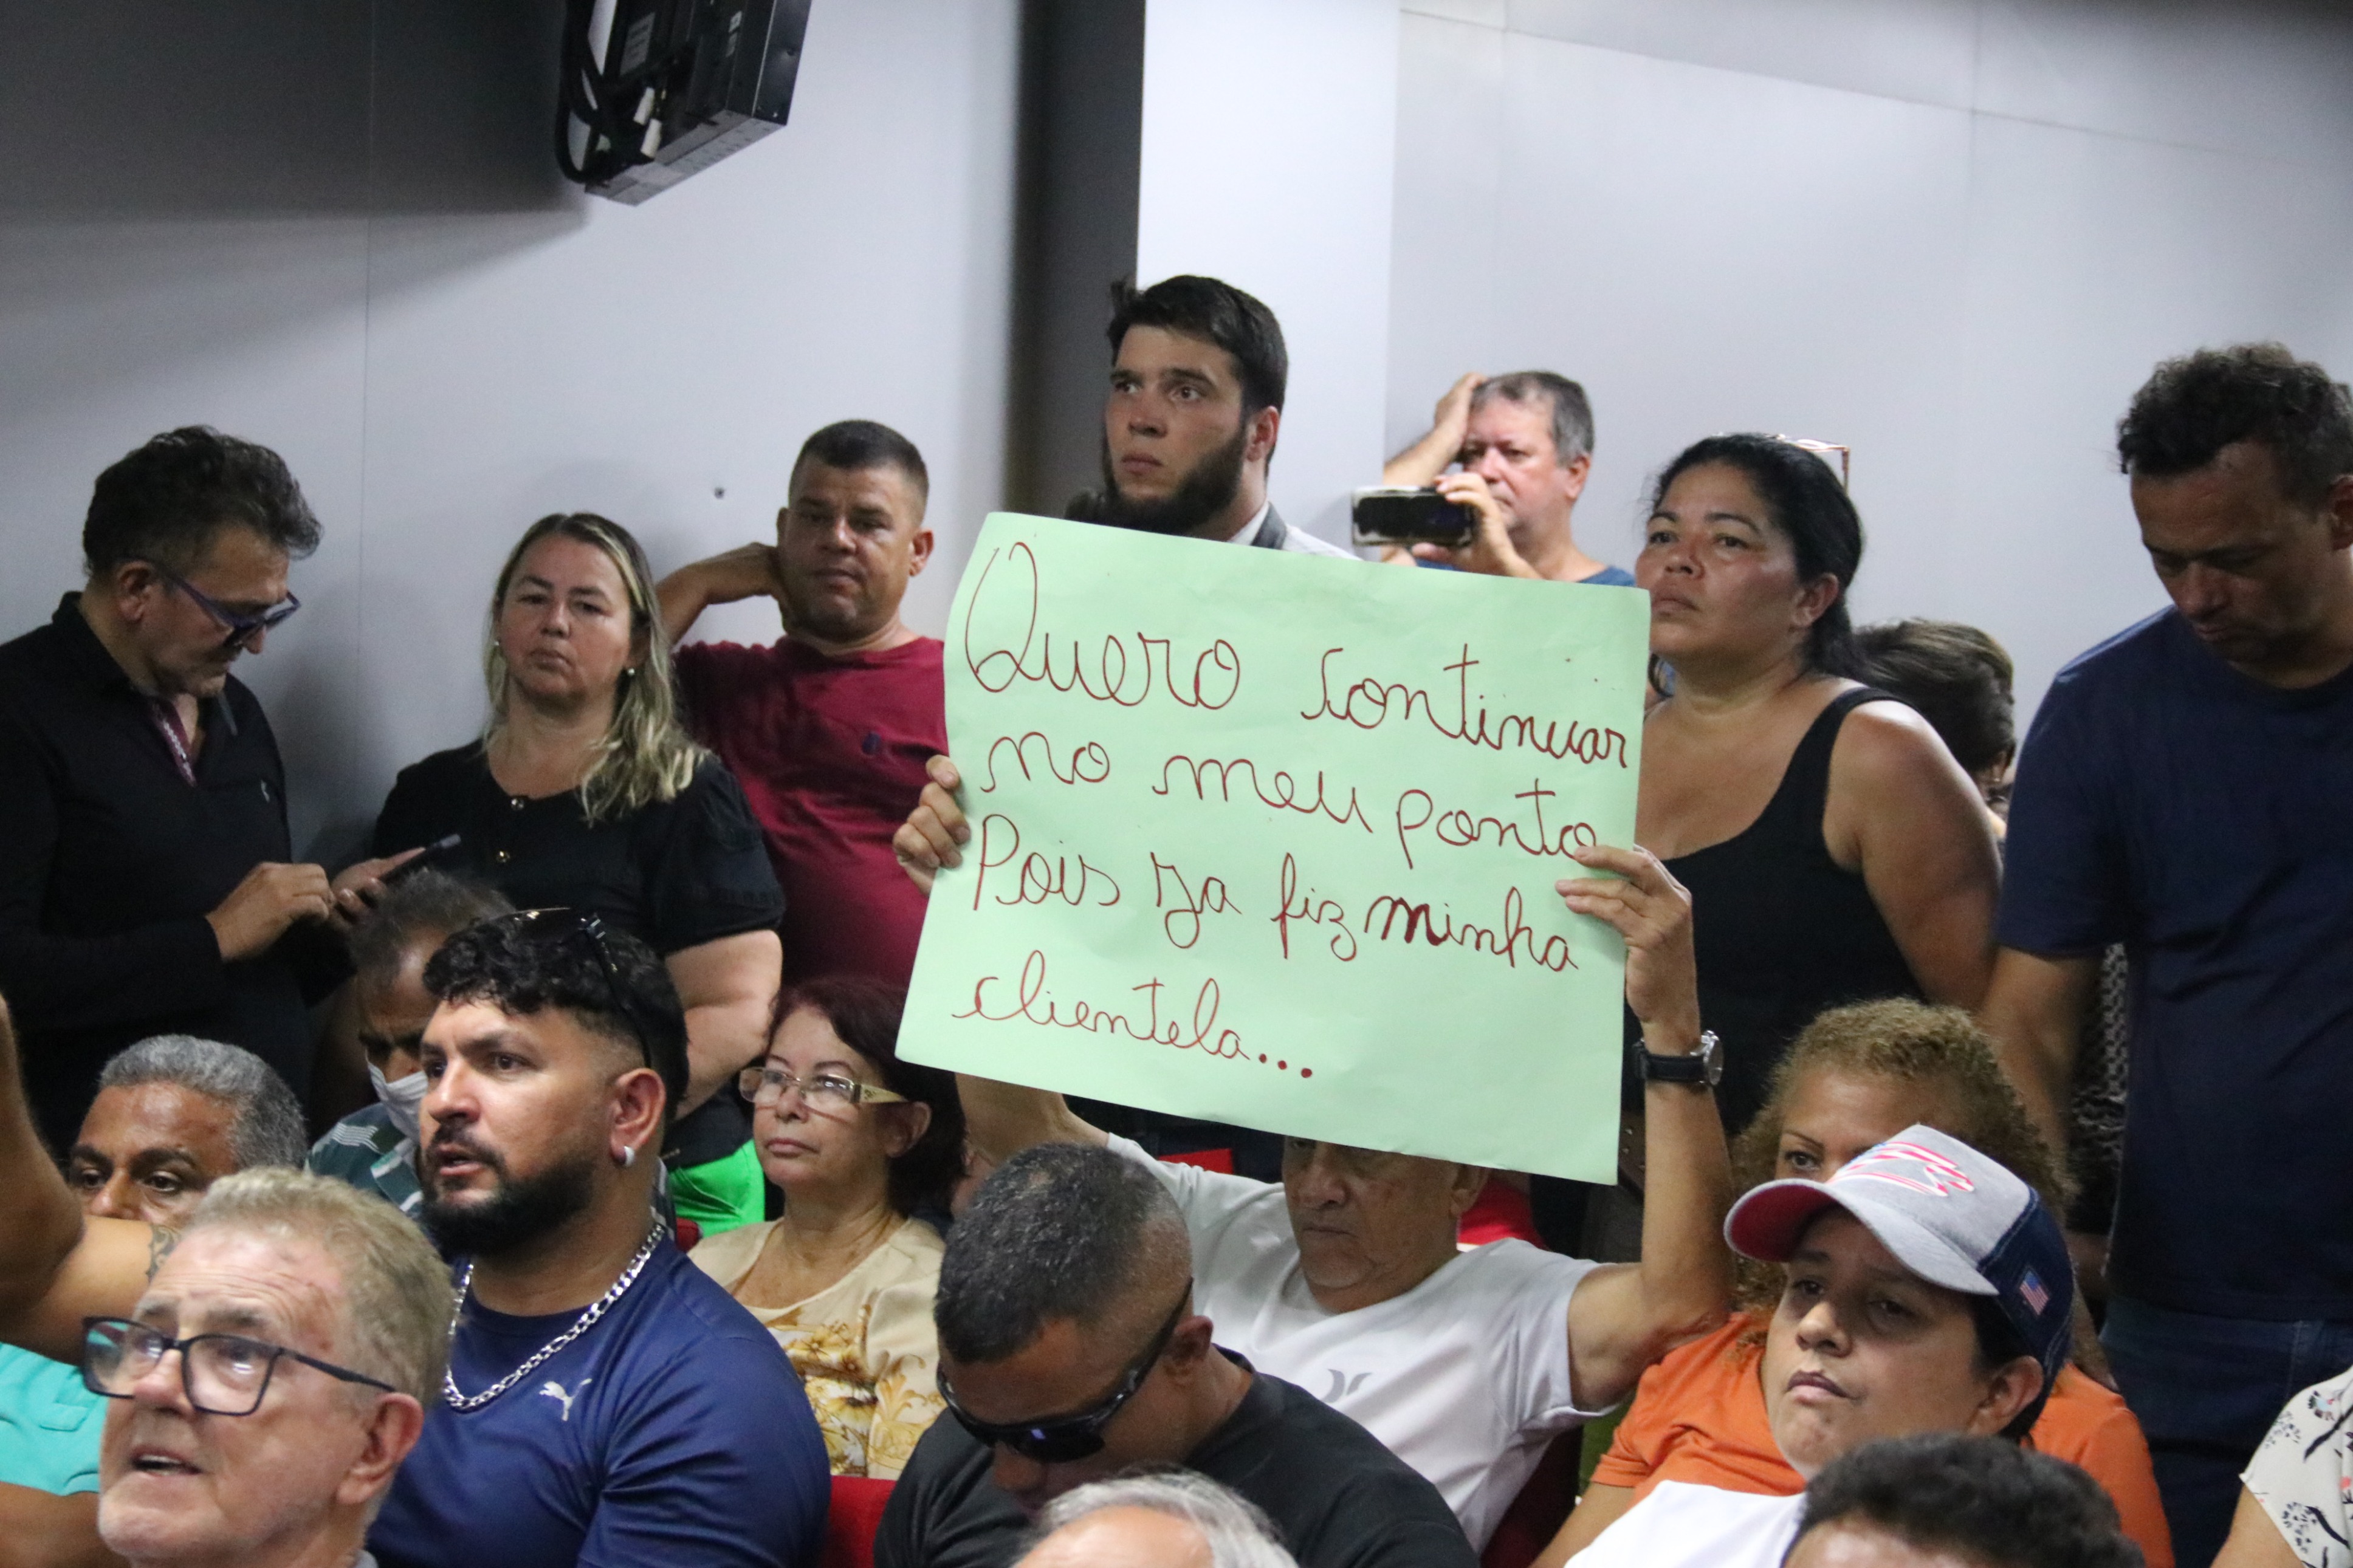 Quero continuar
no meu ponto
Pois Ja fiz minha
clientela...